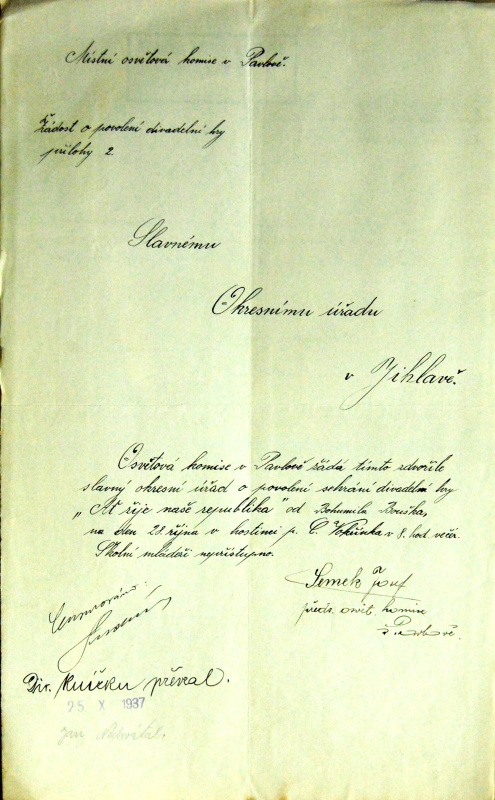 Místní osvětová komise v Pavlově.
Žádost o povolení divadelní hry
přílohy 2.
Slavnému
Okresnímu úřadu
v Jihlavě.
Osvětová komise v Pavlově žádá tímto zdvořile
slavný okresní úřad o povolení sehrání divadelní hry
„Ať žije naše republika" od Bohumila Brusíka,
na den 28. října v hostinci p. Č. Vokřínka v 8. hod večer.
Školní mládeži nepřístupno.
Semek Josef
předs. osvět. komise
v Pavlově.
Cenzurováno:
Div. knížku převzal.
25 X 1937
Jan